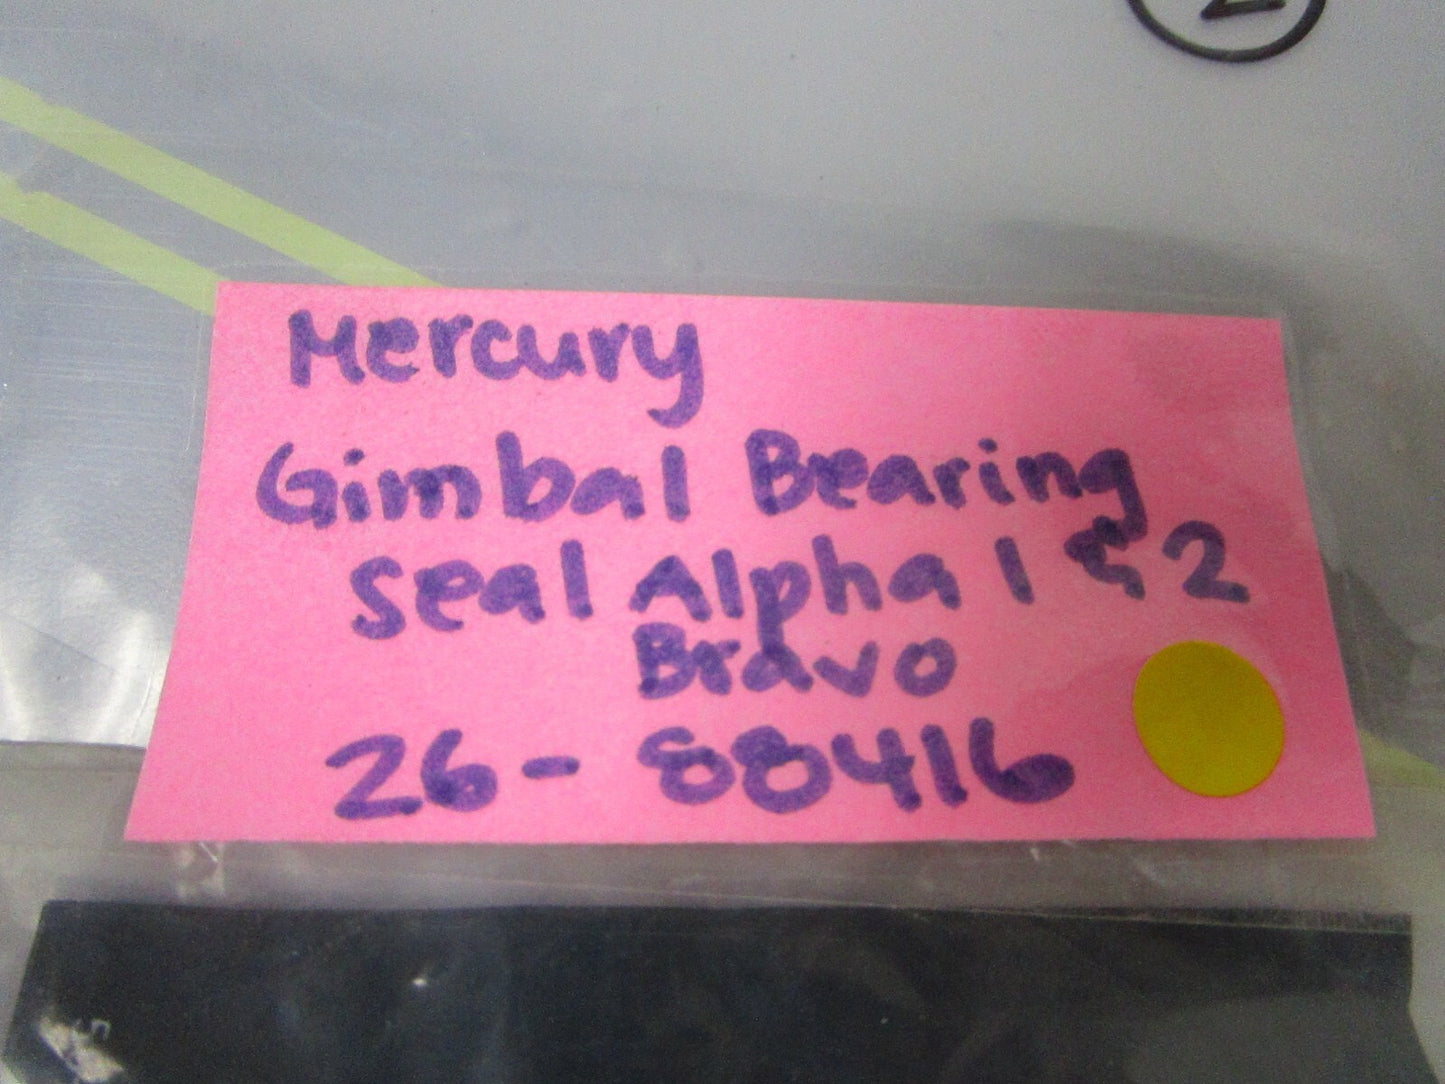 Mercury
Gimbal Bearing
seal Alpha 1 & 2
Bravo
26-88416